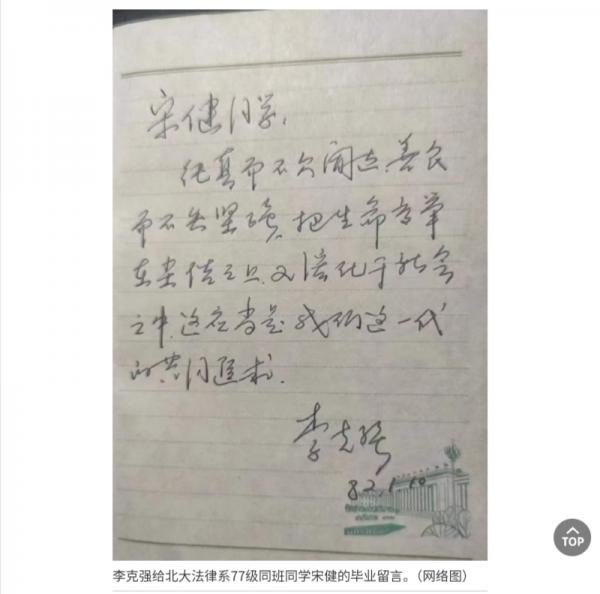 宋健同学：
纯真而不 善良
而不失坚强，把生命高举
在尘俗之上，又溶化于社会
之中，这应当是我们这一代
的共同追求。
李克强
82.1.10
TOP
李克强给北大法律系77级同班同学宋健的毕业留言。（网络图）